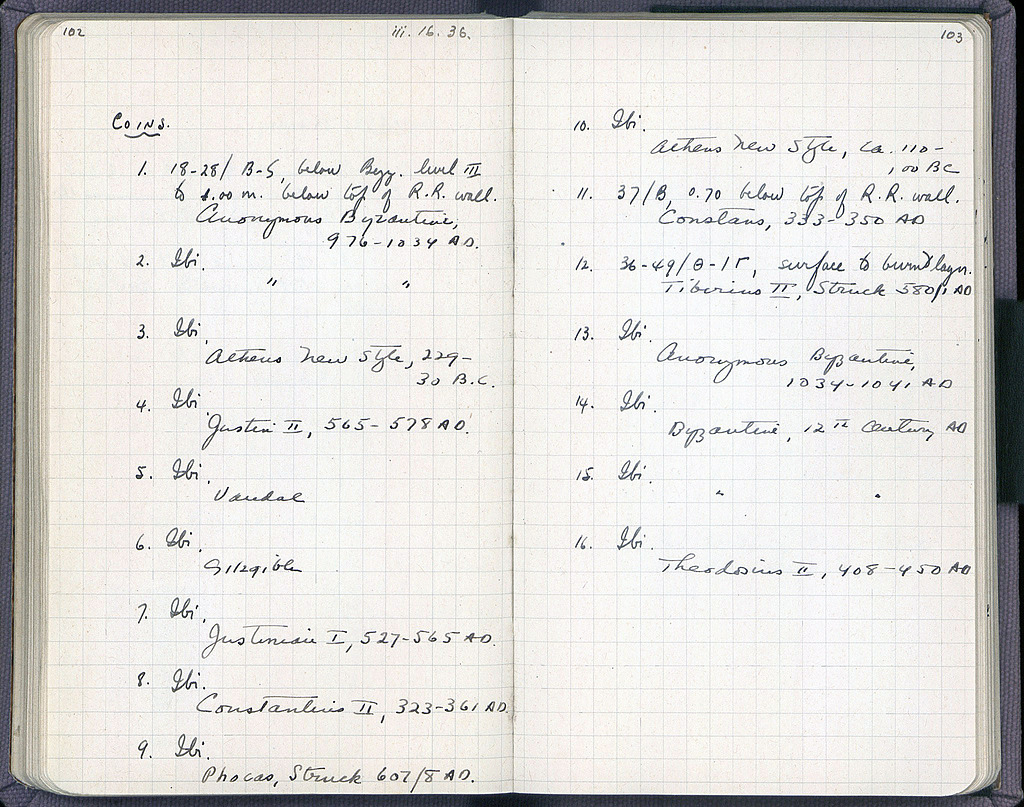 102
iii. 16. 36.
Coins.
1. 18-28/ B-S, below Byz. level III
to 1.00 m. below top of R.R. wall.
Anonymous Byzantine,
976-1034 AD.
2. Ibi.
" "
3. Ibi.
Athens New Style, 229-
30 B.C.
4. Ibi.
Justin II, 565-578 AD.
5. Ibi.
Vandal
6. Ibi.
7. Ibi.
Justinian I, 527-565 AD.
8. Ibi.
Constantius II, 323-361 AD
9. Ibi.
Phocas, Struck 607/8 AD.
103
10. Ibi.
Athens New Style, ca. 110-
100 BC
11. 37/B, 0.70 below top of R.R. wall.
Constans, 333-350 AD
12. 36-49/Θ-ΙΓ, surface to burnt layer.
Tiberius II, Struck 580/1 AD
13. Ibi.
Anonymous Byzantine,
1034-1041 AD
14. Ibi.
Byzantine, 12th Century AD
15. Ibi.
" "
16. Ibi.
Theodosius II, 408-450 AD